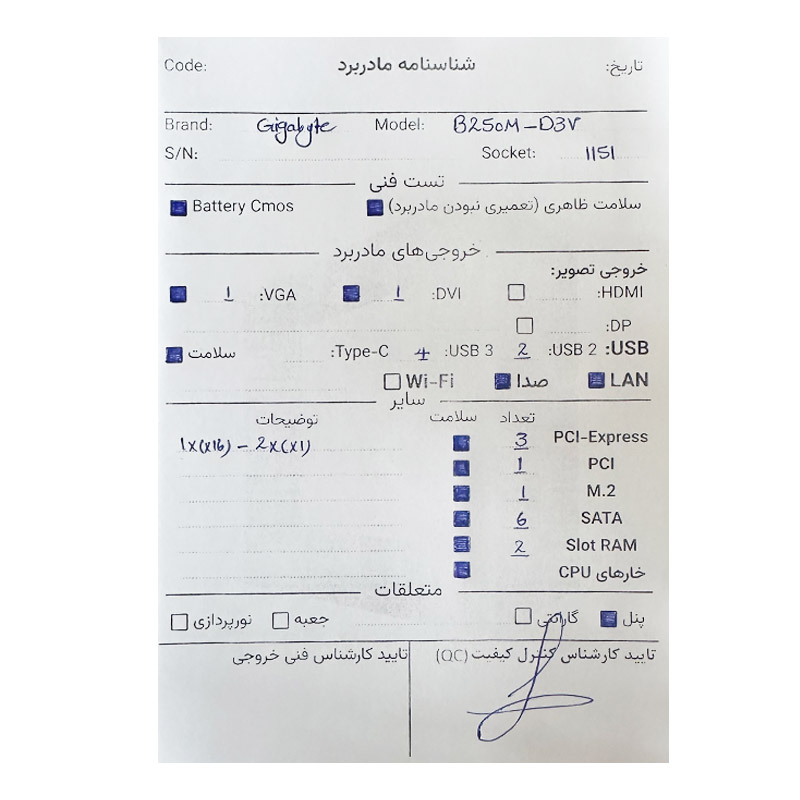 Code: شناسنامه مادربرد تاریخ:
Brand: Gigabyte Model: B250M-D3V
S/N: Socket: 1151
تست فنی
سلامت ظاهری (تعمیری نبودن مادربرد) Battery Cmos
خروجی‌های مادربرد
خروجی تصویر:
HDMI: DVI: 1 VGA: 1
DP:
USB: USB 2: 2 USB 3: 4 Type-C: سلامت
LAN صدا Wi-Fi
سایر
تعداد سلامت توضیحات
PCI-Express 3 1x(x16) - 2x(x1)
PCI 1
M.2 1
SATA 6
Slot RAM 2
خارهای CPU
متعلقات
پنل گارانتی جعبه نورپردازی
تایید کارشناس کنترل کیفیت (QC) تایید کارشناس فنی خروجی